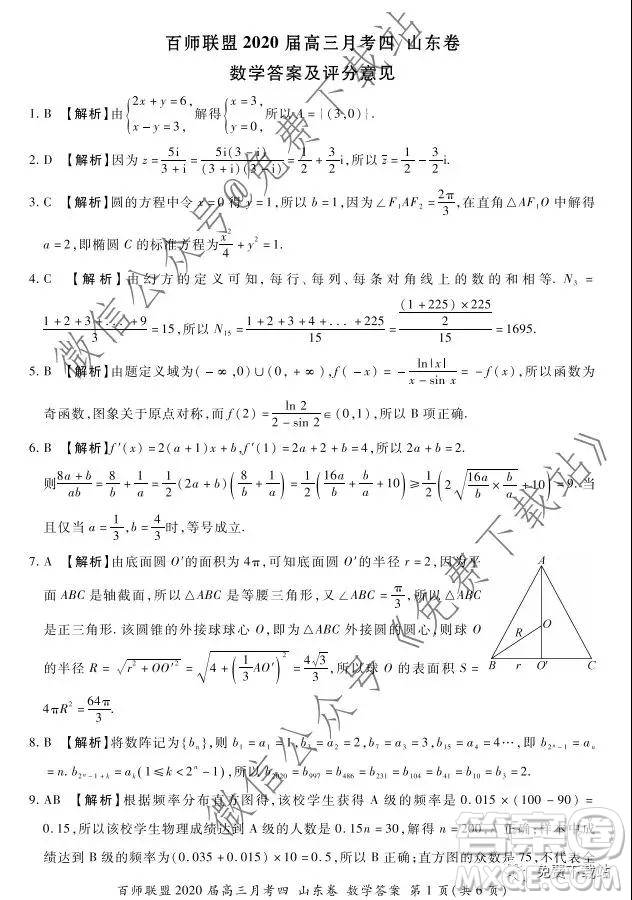 百师联盟 2020 届高三月考四 山东卷
数学答案及评分意见
1. B 【解析】由{2x+y=6, x-y=3, 解得{x=3, y=0, 所以 A={(3,0)}.
2. D 【解析】因为 z=5i/(3+i)=5i(3-i)/((3+i)(3-i))=1/2+3/2 i,所以 z̄=1/2-3/2 i.
3. C 【解析】圆的方程中令 x=0 得 y=1,所以 b=1,因为∠F₁AF₂=2π/3,在直角△AF₁O 中解得
a=2,即椭圆 C 的标准方程为 x²/4+y²=1.
4. C 【解析】由幻方的定义可知,每行、每列、每条对角线上的数的和相等. N₃=
(1+2+3+…+9)/3=15,所以 N₁₅=(1+2+3+4+…+225)/15=((1+225)×225/2)/15=1695.
5. B 【解析】由题定义域为(-∞,0)∪(0,+∞),f(-x)=-ln|x|/(x-sin x)=-f(x),所以函数为
奇函数,图象关于原点对称,而 f(2)=ln 2/(2-sin 2)∈(0,1),所以 B 项正确.
6. B 【解析】f′(x)=2(a+1)x+b,f′(1)=2a+2+b=4,所以 2a+b=2.
则(8a+b)/ab=8/b+1/a=1/2(2a+b)(8/b+1/a)=1/2(16a/b+b/a+10)≥1/2(2√(16a/b×b/a)+10)=9. 当
且仅当 a=1/3,b=4/3时,等号成立.
7. A 【解析】由底面圆 O′的面积为 4π,可知底面圆 O′的半径 r=2,因为平
面 ABC 是轴截面,所以△ABC 是等腰三角形,又∠ABC=π/3,所以△ABC
是正三角形. 该圆锥的外接球球心 O,即为△ABC 外接圆的圆心,则球 O
的半径 R=√(r²+OO′²)=√(4+(1/3 AO′)²)=4√3/3,所以球 O 的表面积 S=
4πR²=64π/3.
A
O
R
B r O′ C
8. B 【解析】将数阵记为{bₙ},则 b₁=a₁=1,b₃=a₂=2,b₅=a₃=3,b₇=a₄=4…,即 b₂ₙ₋₁=aₙ
=n. b_{2^{n-1}+k}=a_k(1≤k<2ⁿ-1),所以 b₂₀₂₀=b₉₉₇=b₄₈₆=b₂₃₁=b₁₀₄=b₄₁=b₁₀=b₃=2.
9. AB 【解析】根据频率分布直方图得,该校学生获得 A 级的频率是 0.015×(100-90)=
0.15,所以该校学生物理成绩达到 A 级的人数是 0.15n=30,解得 n=200,A 正确;样本中成
绩达到 B 级的频率为(0.035+0.015)×10=0.5,B 正确;直方图的众数是 75,不代表全
百师联盟 2020 届高三月考四 山东卷 数学答案 第 1 页(共 6 页)
微信公众号@免费下载站
微信公众号《免费下载站》
免费下载站